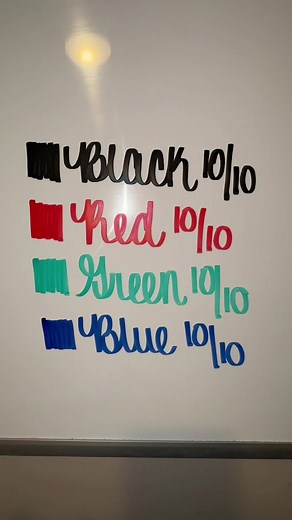 Black 10/10
Red 10/10
Green 10/10
Blue 10/10